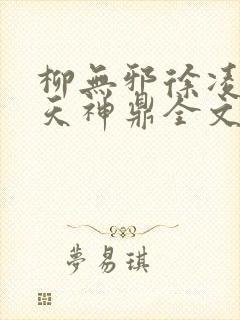 柳無邪徐凌
天神鼎全文
夢易琪